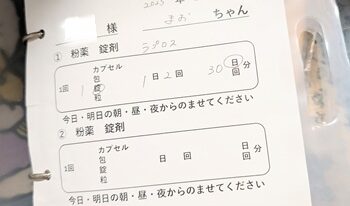 2025 年
様 まお ちゃん
① 粉薬 錠剤 ラプロス
カプセル
包
1回 1 錠 1日2回 30 日分
粒 回
今日・明日の朝・昼・夜からのませてください
② 粉薬 錠剤
カプセル
包 日
1回 錠 日 回 分
粒 回
今日・明日の朝・昼・夜からのませてください